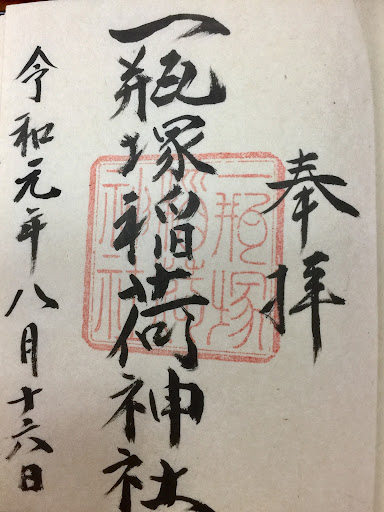 奉拝
一瓶塚稲荷神社
令和元年八月十六日
一瓶塚
稲荷
神社